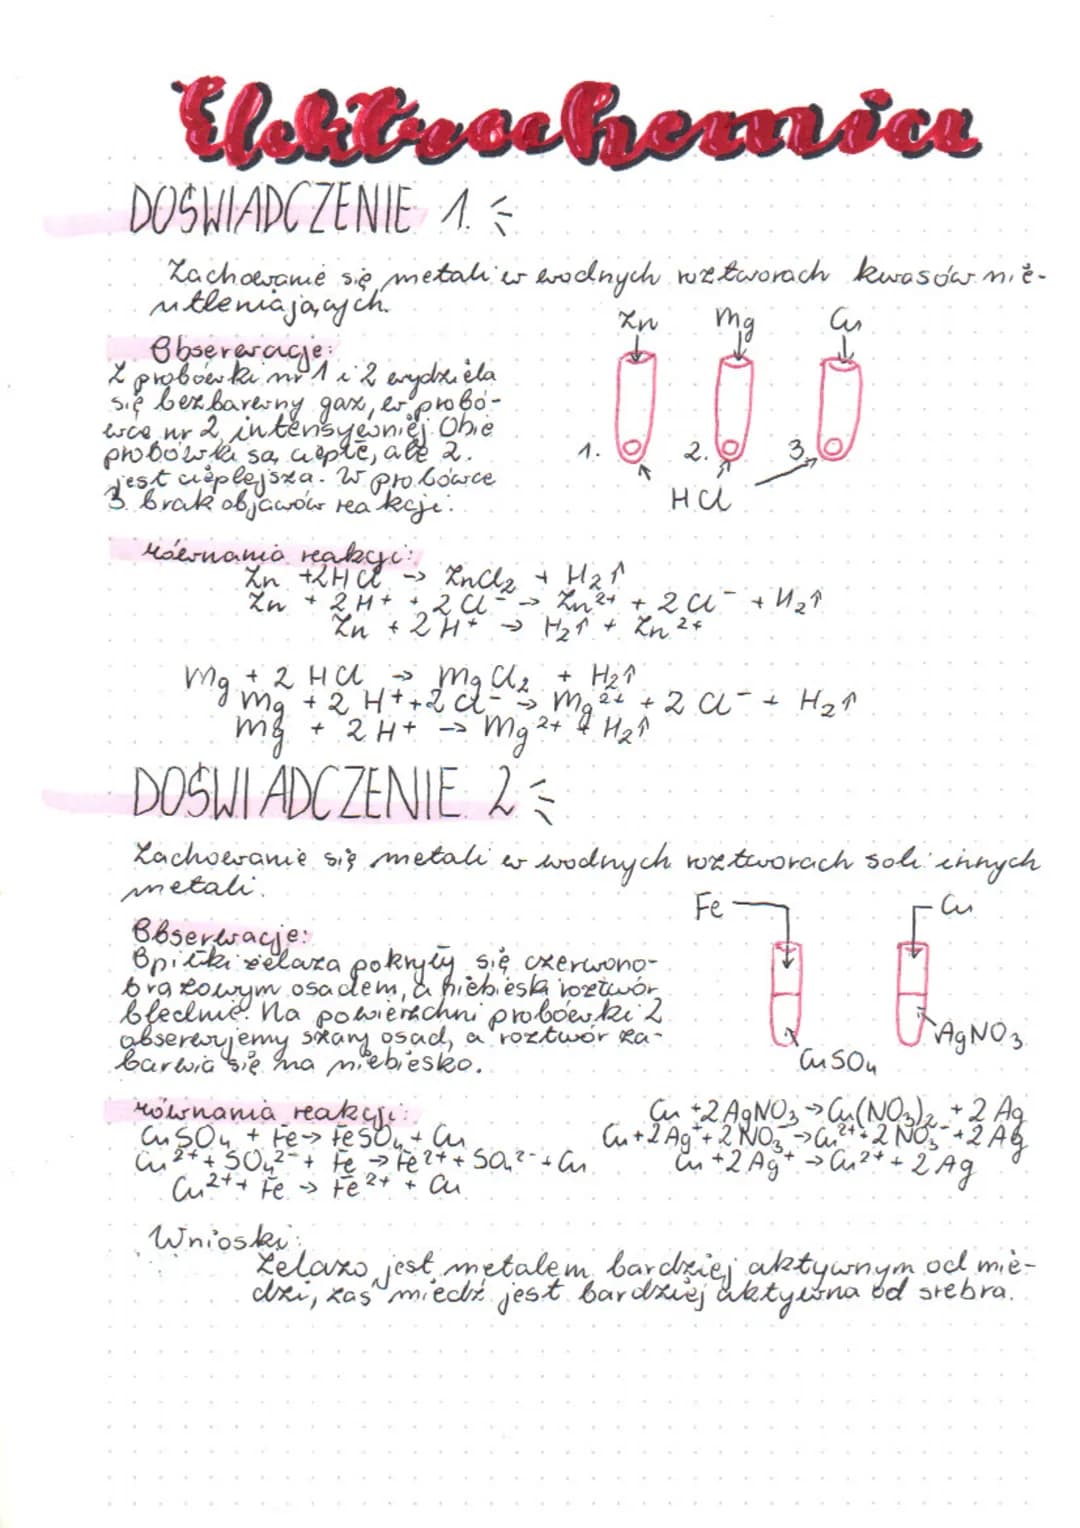 Elektrochemia
DOŚWIADCZENIE 1.
Zachowanie się metali w wodnych roztworach kwasów nie-
utleniających.
Zn Mg Cu
Obserwacje:
Z probówki nr 1 i 2 wydziela
się bezbarwny gaz, w probó-
wce nr 2 intensywniej. Obie
probówki są ciepłe, ale 2.
jest cieplejsza. W probówce
3. brak objawów reakcji.
1. 2. 3.
HCl
równania reakcji:
Zn + 2HCl -> ZnCl₂ + H₂↑
Zn + 2H⁺ + 2Cl⁻ -> Zn²⁺ + 2Cl⁻ + H₂↑
Zn + 2H⁺ -> H₂↑ + Zn²⁺
Mg + 2HCl -> MgCl₂ + H₂↑
Mg + 2H⁺ + 2Cl⁻ -> Mg²⁺ + 2Cl⁻ + H₂↑
Mg + 2H⁺ -> Mg²⁺ + H₂↑
DOŚWIADCZENIE 2
Zachowanie się metali w wodnych roztworach soli innych
metali.
Fe Cu
Obserwacje:
Opiłki żelaza pokryły się czerwono-
brązowym osadem, a niebieski roztwór
blednie. Na powierzchni probówki 2
obserwujemy szary osad, a roztwór za-
barwia się na niebiesko.
CuSO₄
AgNO₃
równania reakcji:
CuSO₄ + Fe -> FeSO₄ + Cu
Cu²⁺ + SO₄²⁻ + Fe -> Fe²⁺ + SO₄²⁻ + Cu
Cu²⁺ + Fe -> Fe²⁺ + Cu
Cu + 2AgNO₃ -> Cu(NO₃)₂ + 2Ag
Cu + 2Ag⁺ + 2NO₃⁻ -> Cu²⁺ + 2NO₃⁻ + 2Ag
Cu + 2Ag⁺ -> Cu²⁺ + 2Ag
Wnioski:
Żelazo jest metalem bardziej aktywnym od mie-
dzi, zaś miedź jest bardziej aktywna od srebra.